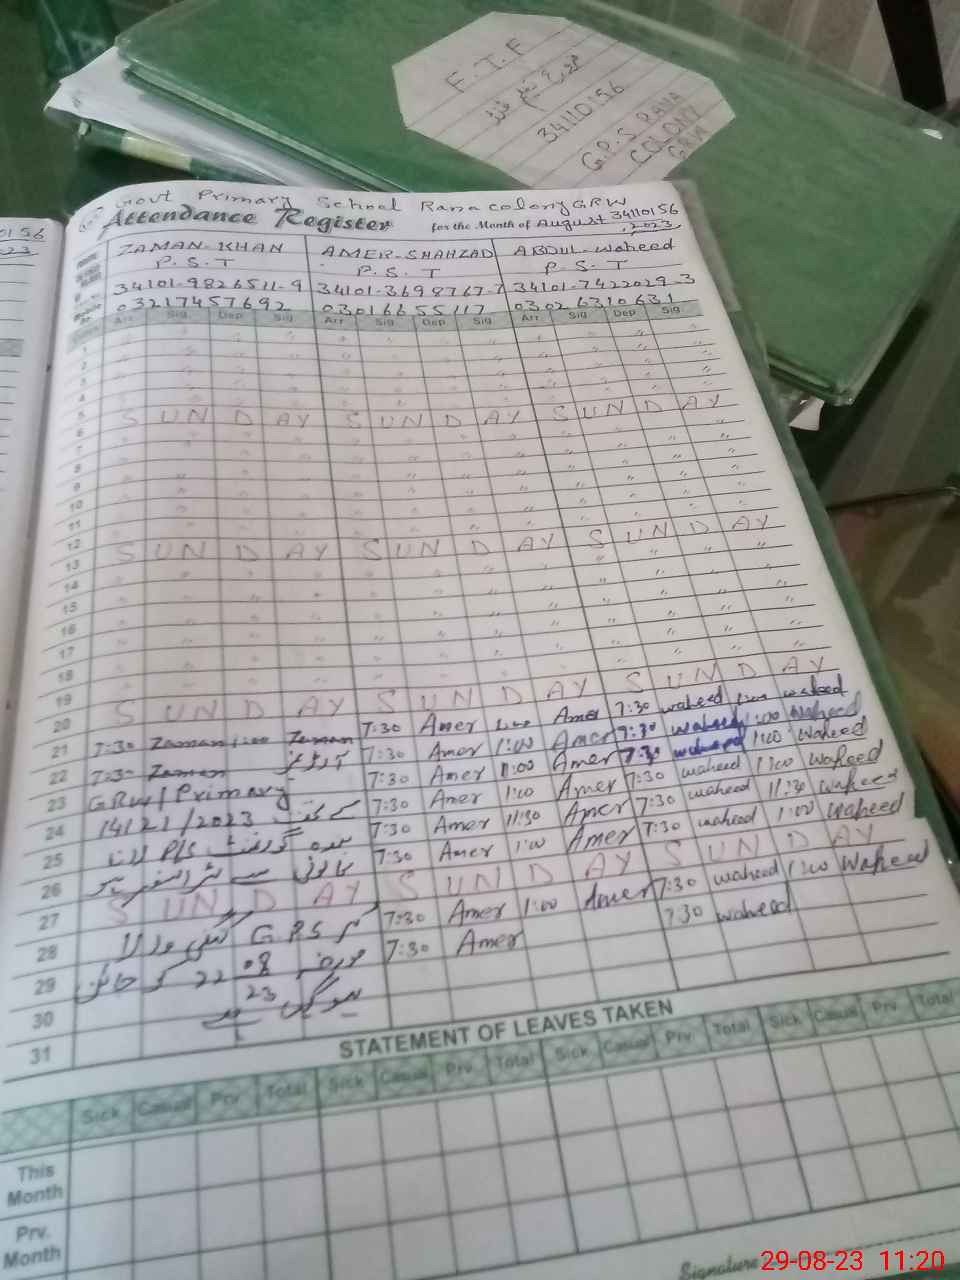 F.T.F
فروغ تعلیم فنڈ
34110156
G.P.S RANA
COLONY
GRW
Govt Primary School Rana colony GRW
34110156
Attendance Register for the Month of August, 2023
ZAMAN-KHAN AMER-SHAHZAD ABDUL-Waheed
P.S.T P.S.T P.S.T
34101-9826511-9 34101-3698767-7 34101-7422029-3
03217457692 03016655117 03026310631
Arr Sig Dep Sig Arr Sig Dep Sig Arr Sig Dep Sig
1
2
3
4
5
6 SUNDAY SUNDAY SUNDAY
7
8
9
10
11
12
13 SUNDAY SUNDAY SUNDAY
14
15
16
17
18
19
20 SUNDAY SUNDAY SUNDAY
21 7:30 Zaman 1:00 Zaman 7:30 Amer 1:00 Amer 7:30 waheed 1:00 waheed
22 7:30 Zaman 7:30 Amer 1:00 Amer 7:30 waheed 1:00 Waheed
23 GRW/Primary 7:30 Amer 11:00 Amer 7:30 waheed 1:00 Waheed
24 14121/2023 کے تحت 7:30 Amer 1:00 Amer 7:30 waheed 1:00 Waheed
25 7:30 Amer 11:30 Amer 7:30 waheed 11:30 Waheed
26 کالونی سے ٹرانسفر ہو 7:30 Amer 1:00 Amer 7:30 waheed 1:00 Waheed
27 SUNDAY SUNDAY SUNDAY
28 کر GPS 7:30 Amer 1:00 Amer 7:30 waheed 1:00 Waheed
29 مورخہ 22 08 23 کو 7:30 Amer 7:30 waheed
30 ہو گئے ہیں
31
STATEMENT OF LEAVES TAKEN
Sick Casual Prv. Total Sick Casual Prv. Total Sick Casual Prv. Total
This Month
Prv. Month
Signature
29-08-23 11:20